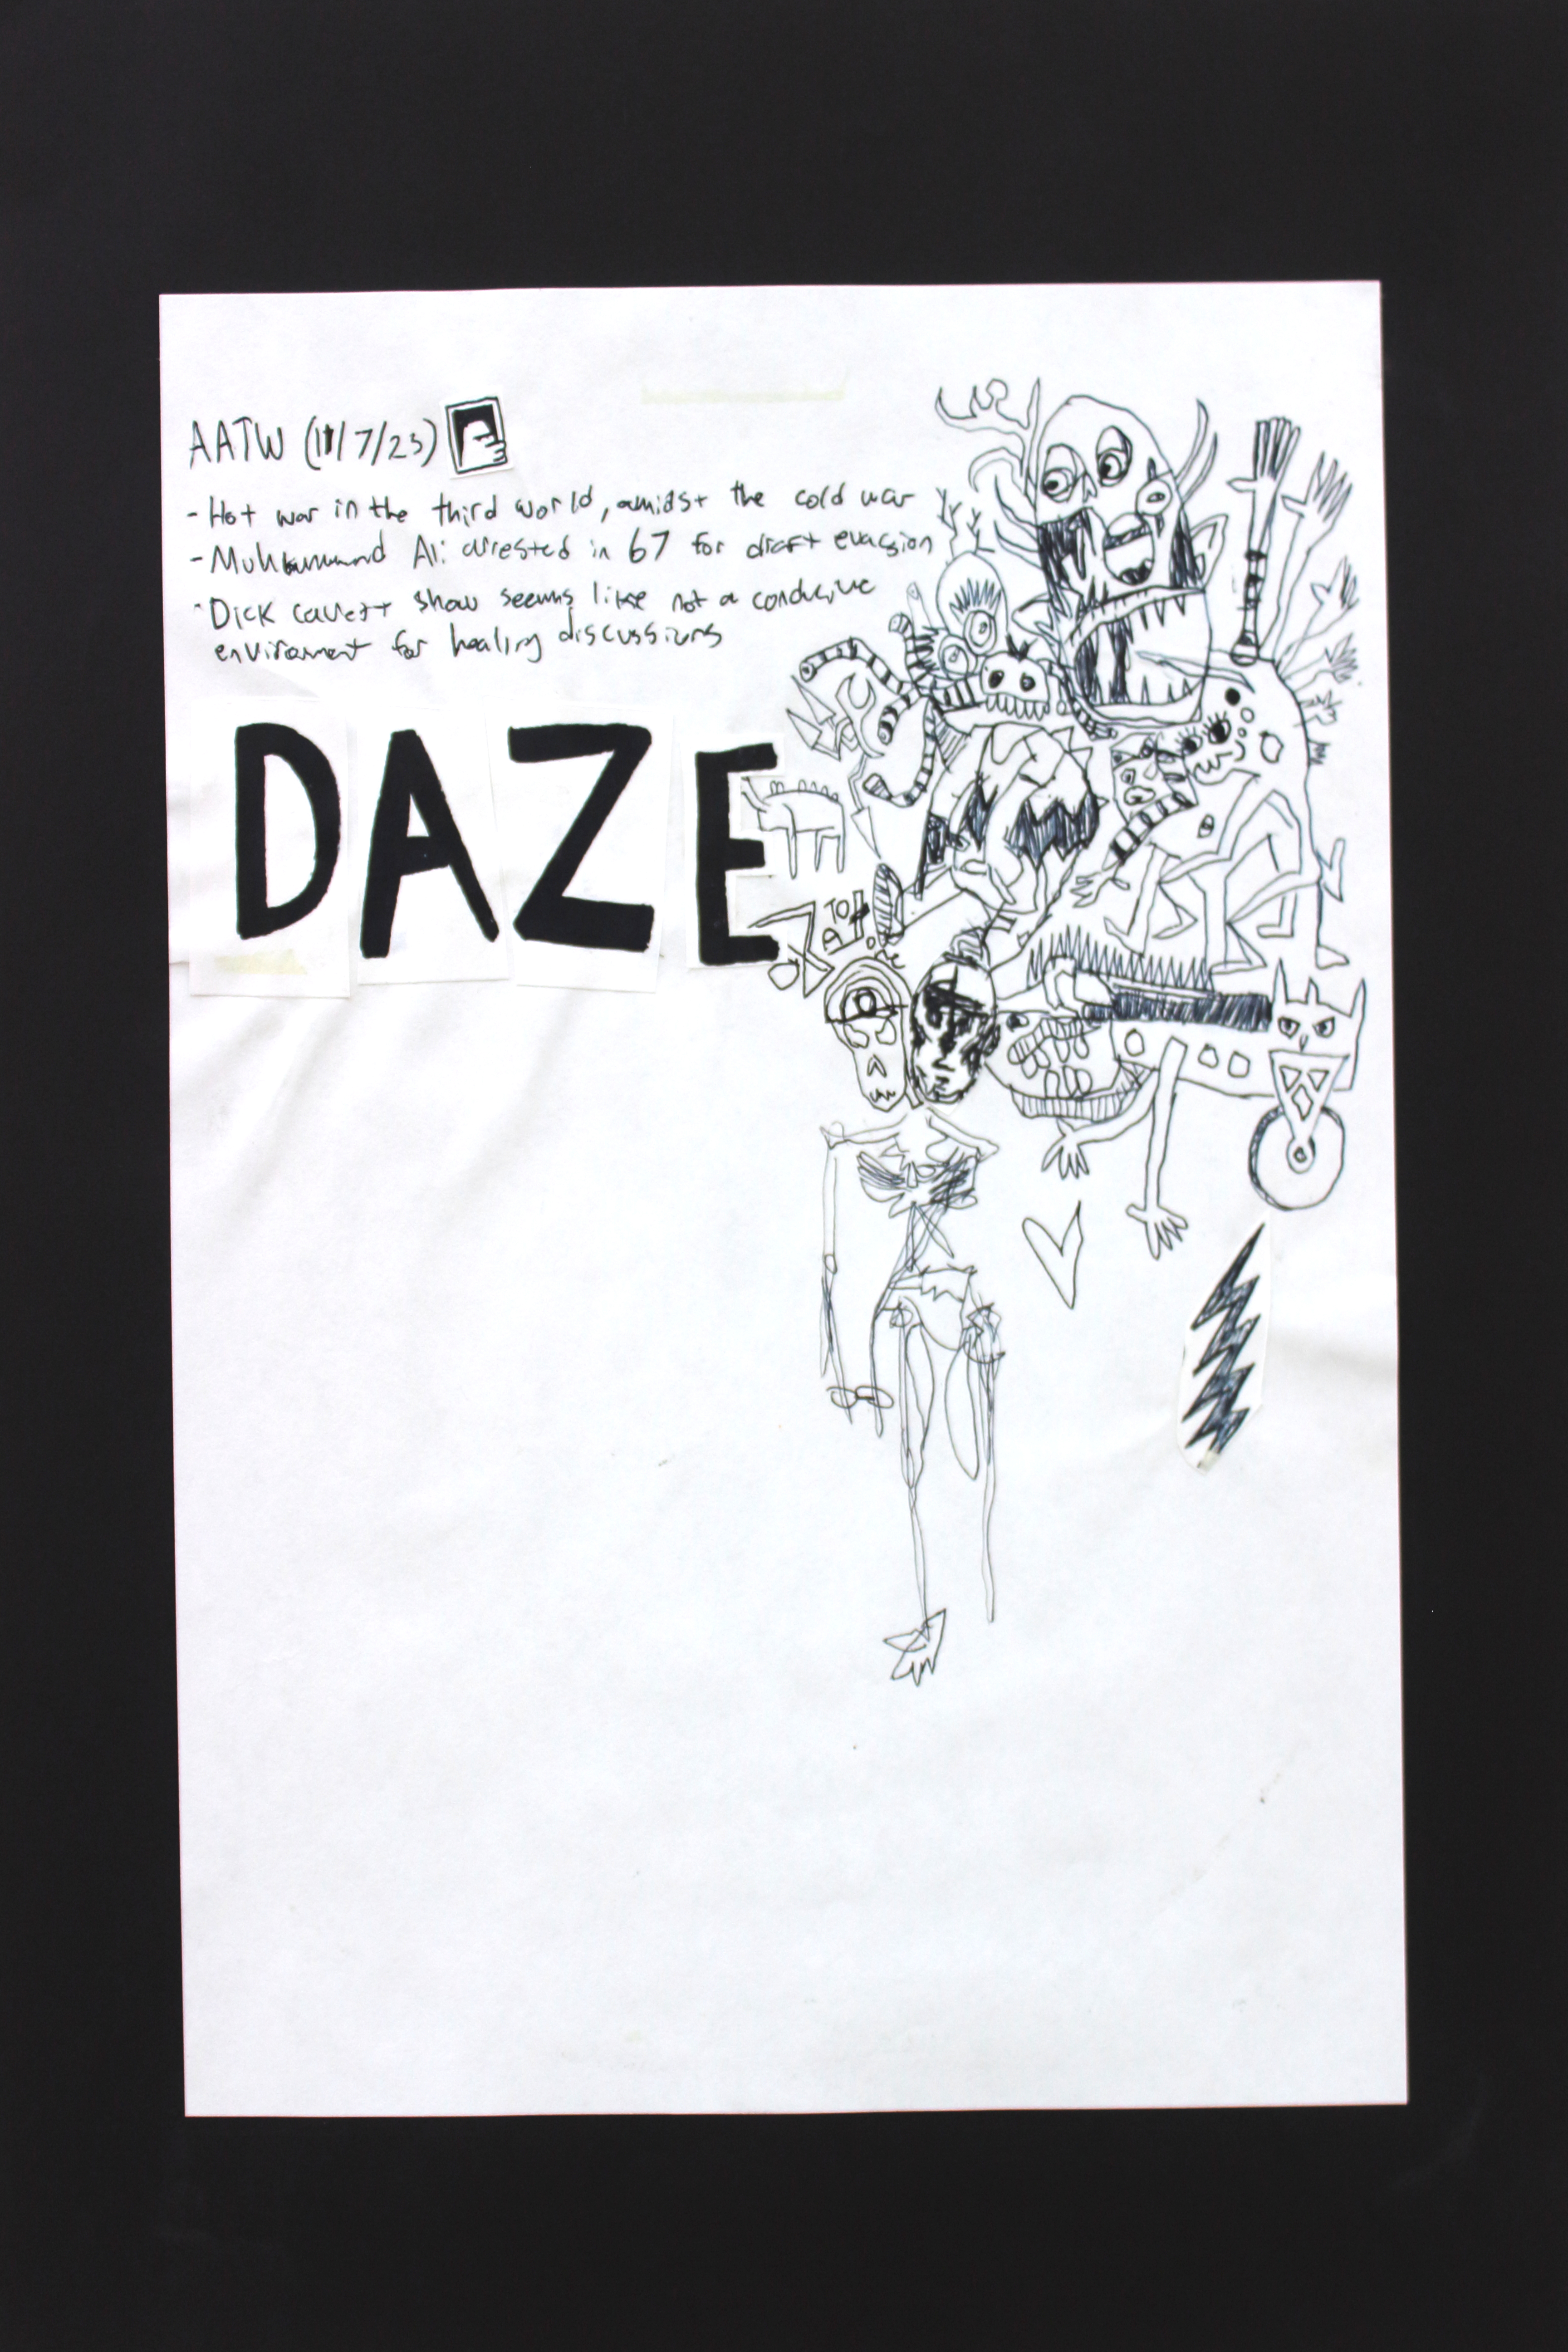 AATW (11/7/23)
- Hot war in the third world, amidst the cold war
- Muhammad Ali arrested in 67 for draft evasion
- Dick cavett show seems like not a conducive
enviroment for healing discussions
DAZE
TO
A